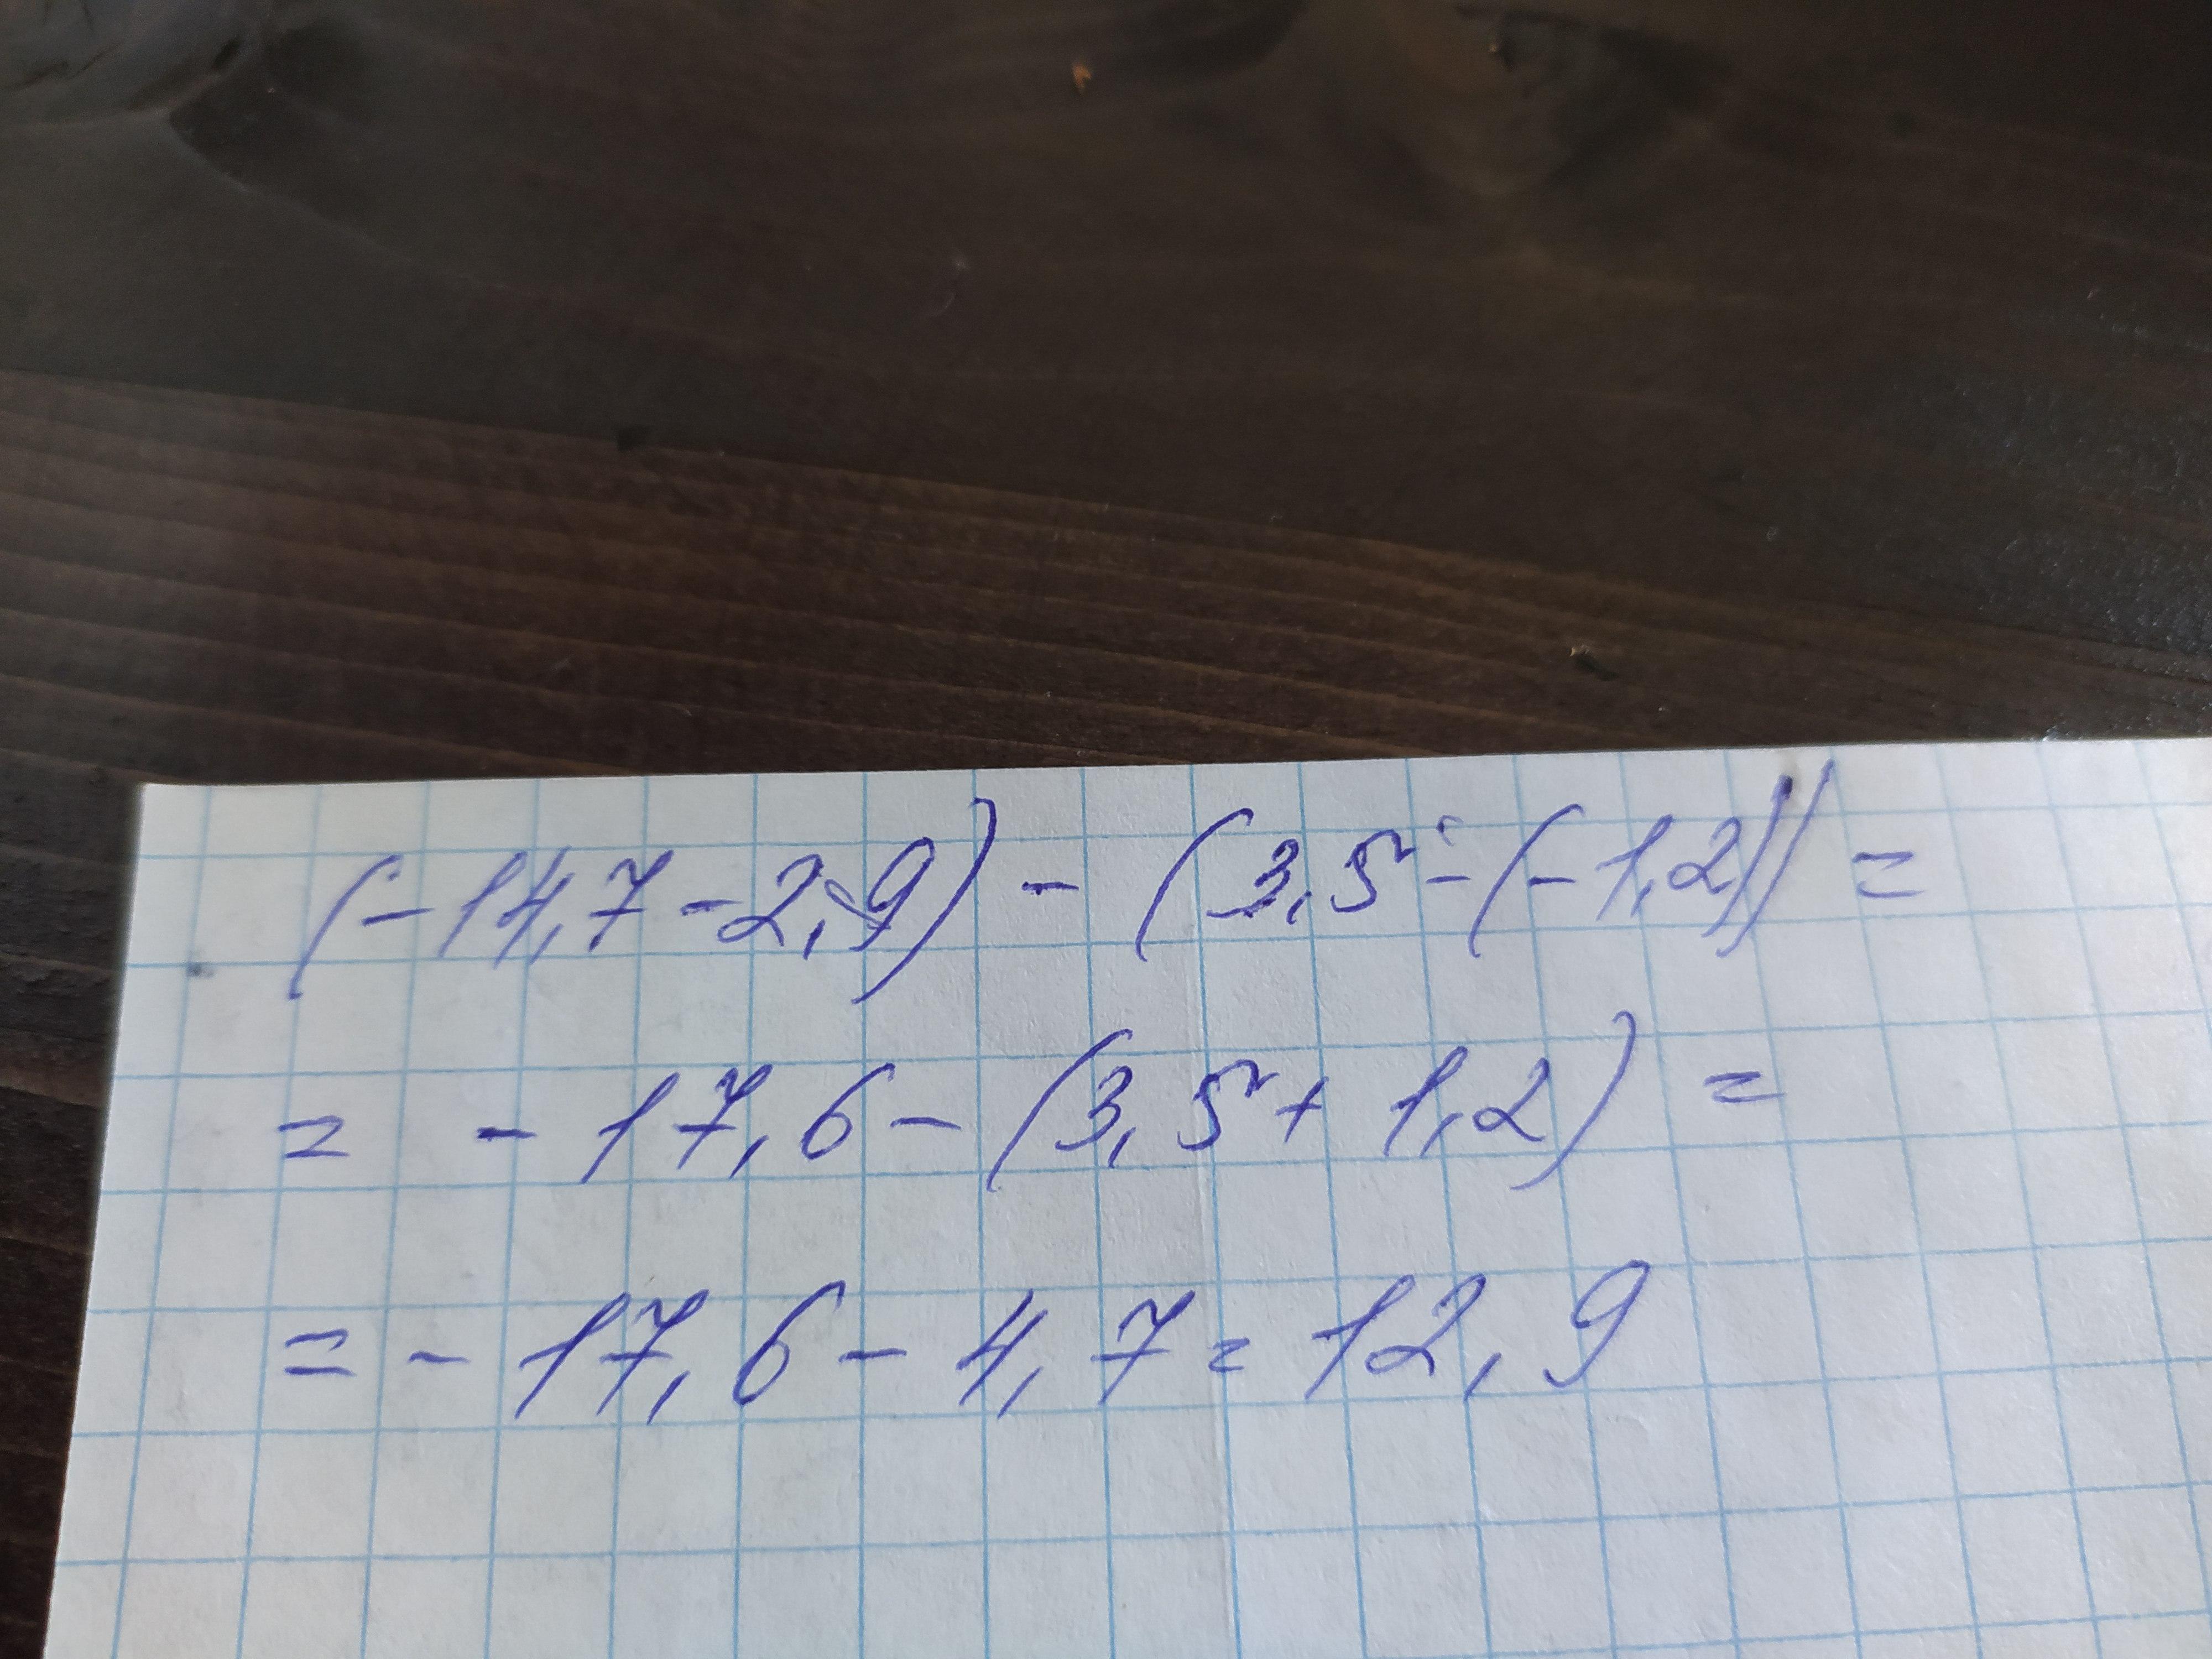 (-14,7-2,9)-(3,5-(-1,2))=
= -17,6-(3,5+1,2)=
=-17,6-4,7=12,9